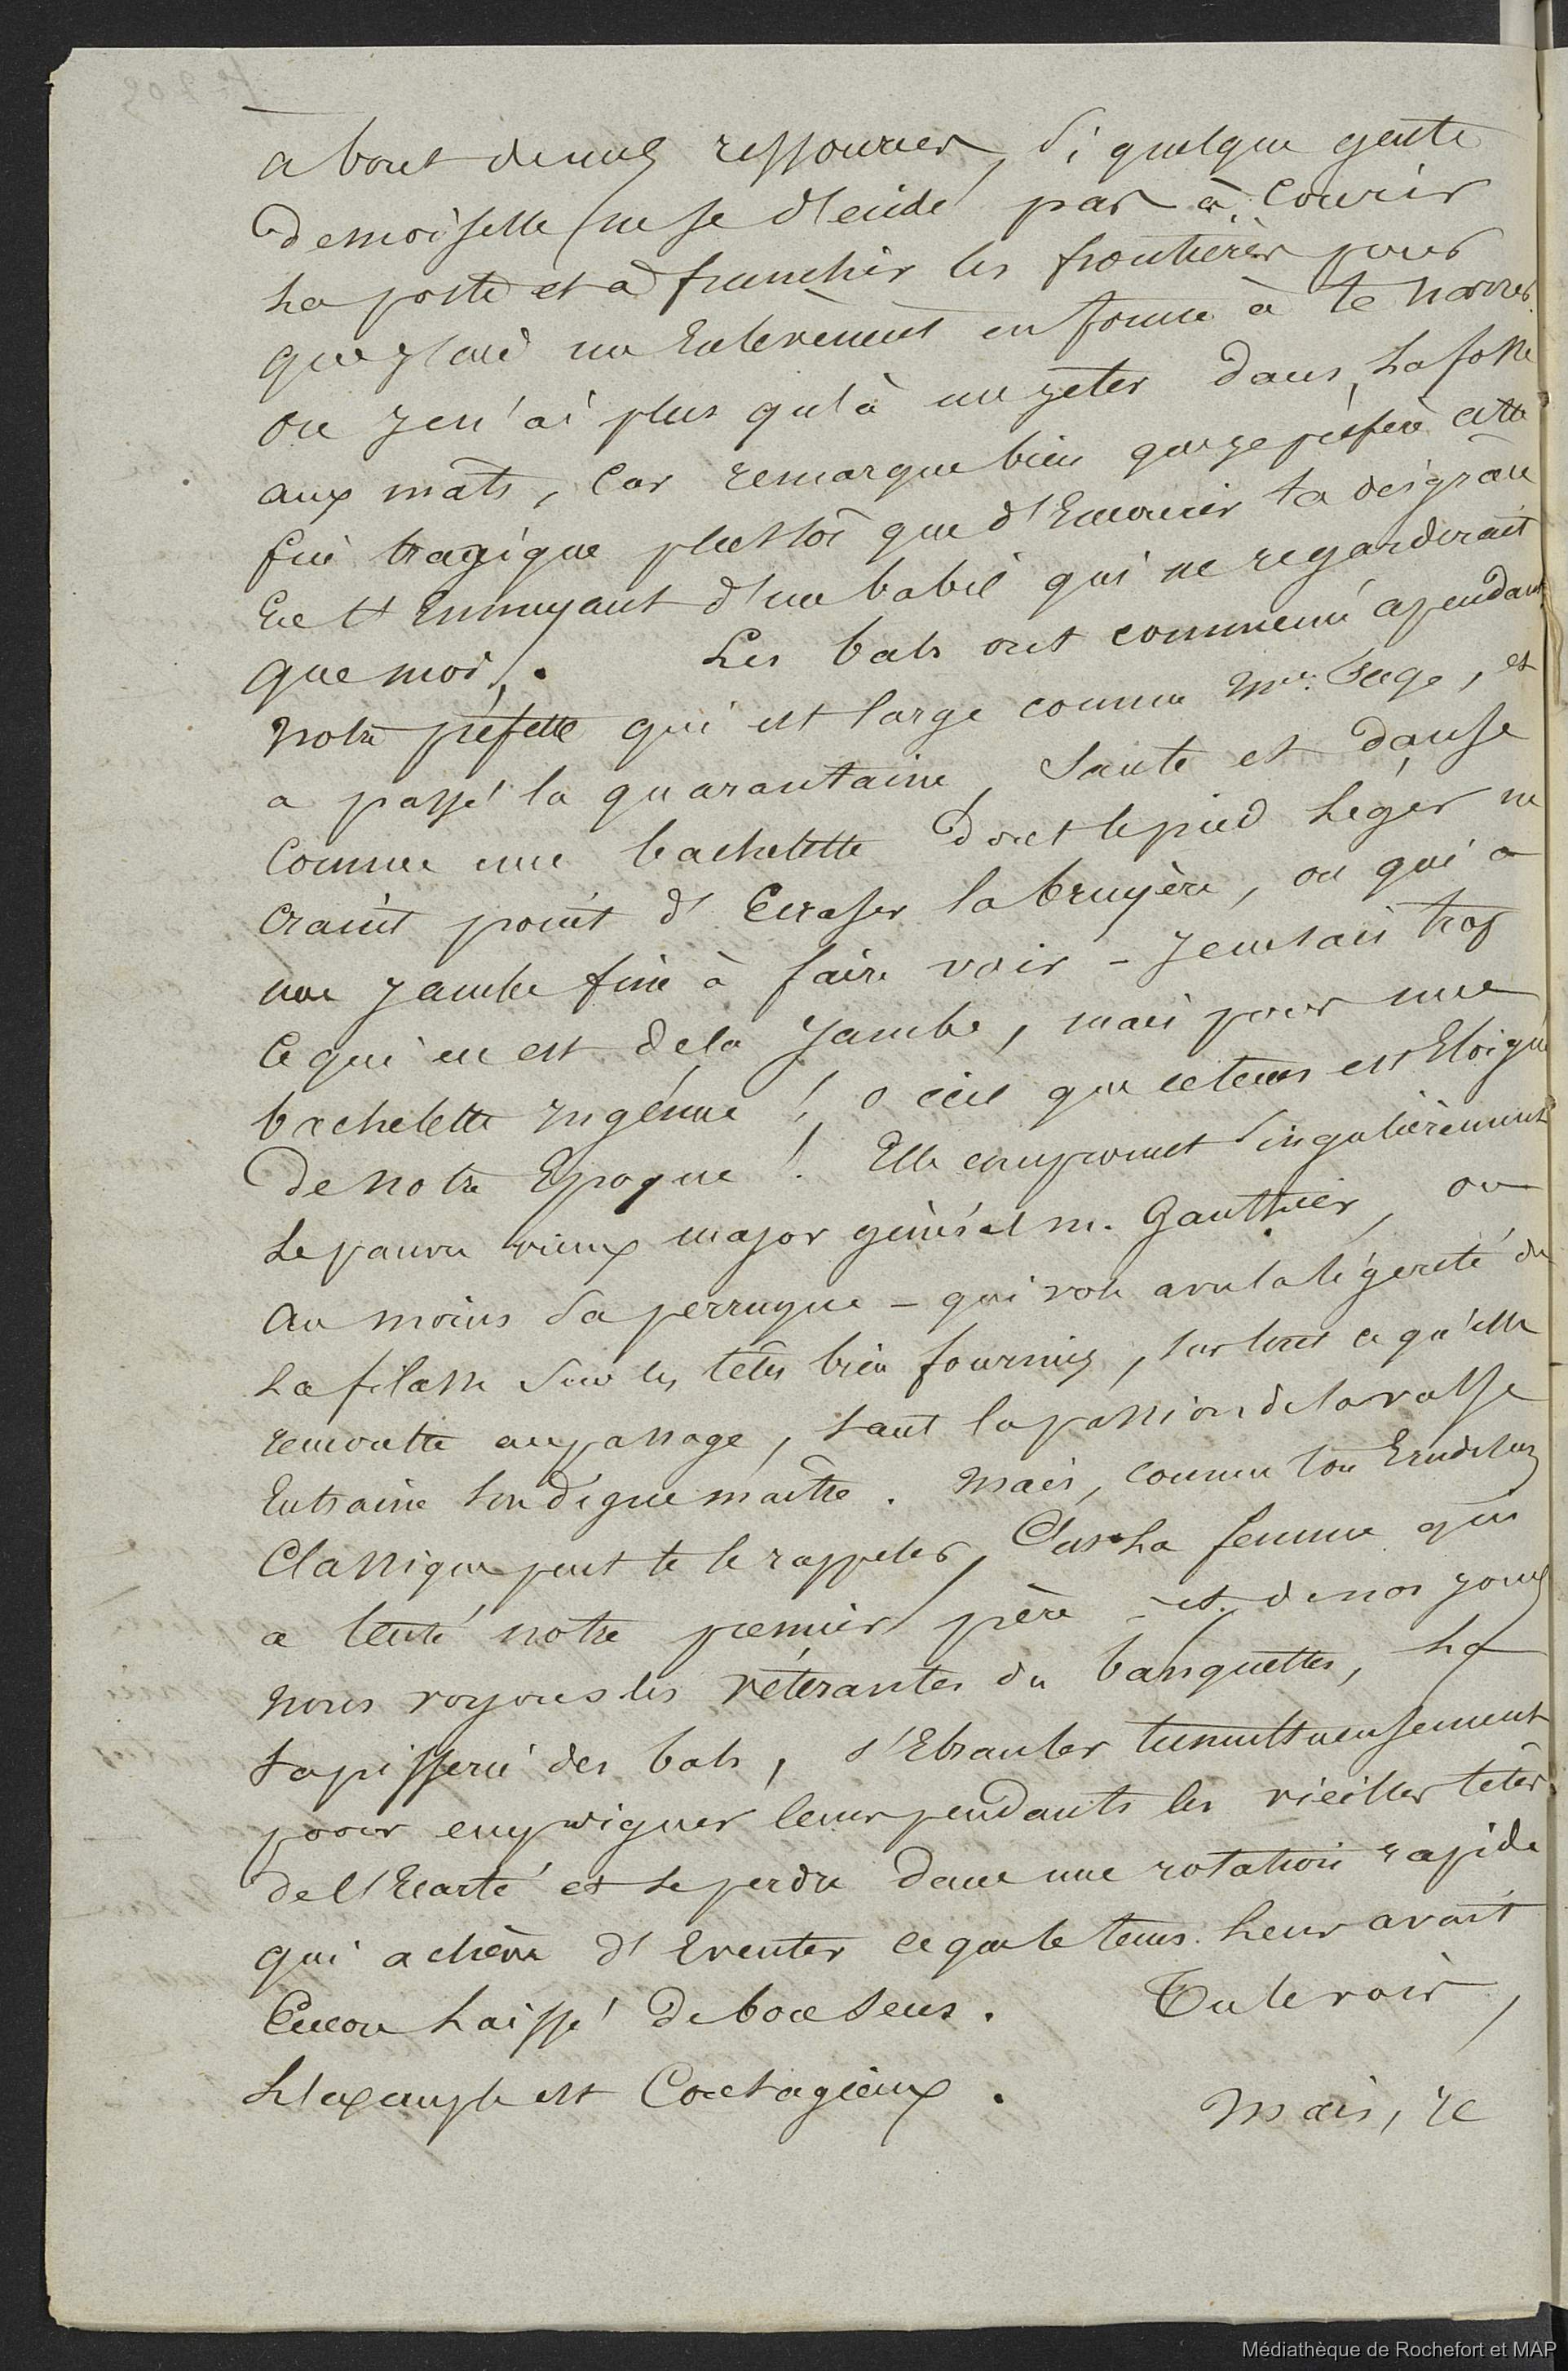 a bout de mes ressources, si quelque gente
demoiselle ne se décide pas à courir
la poste et à franchir les frontières pour
que j'aie un enlèvement en forme à te narrer
ou je n'ai plus qu'à me jeter dans la fosse
aux mats, car remarque bien que je préfère cette
fin tragique plustot que d'encourir ta disgrace
en t'ennuyant d'un babil qui ne regarderait
que moi. Les bals ont commencé cependant
notre préfette qui est large comme Me. , et
a passé la quarantaine, saute et danse
comme une bachelette dont le pied léger ne
craint point d'écraser la bruyère, ou qui a
une jambe fine à faire voir - je ne sais trop
ce qui en est de la jambe, mais pour une
bachelette ingénue ! o ciel que ce tems est éloigné
de notre époque ! Elle compromet singulièrement
le pauvre vieux major général m. Gauthier, ou
au moins sa perruque - qui vole avec la légereté de
la filasse sur les têtes bien fournies, sur tout ce qu'elle
rencontre au passage, tant la passion de la valse
entraine son digne maître. Mais, comme ton érudition
classique peut te le rappeler, C'est la femme qui
a tenté notre premier père - et de nos jours
nous voyons les vétérantes du banquettes, la
tapisserie des bals, s'ébranler tumultueusement
pour empoigner leurs pendants les vieilles têtes
de l'écarté et se perdre dans une rotation rapide
qui achève d'éventer ce que le tems leur avait
encore laissé de bon sens. Tu le vois,
L'exemple est contagieux. Mais, je